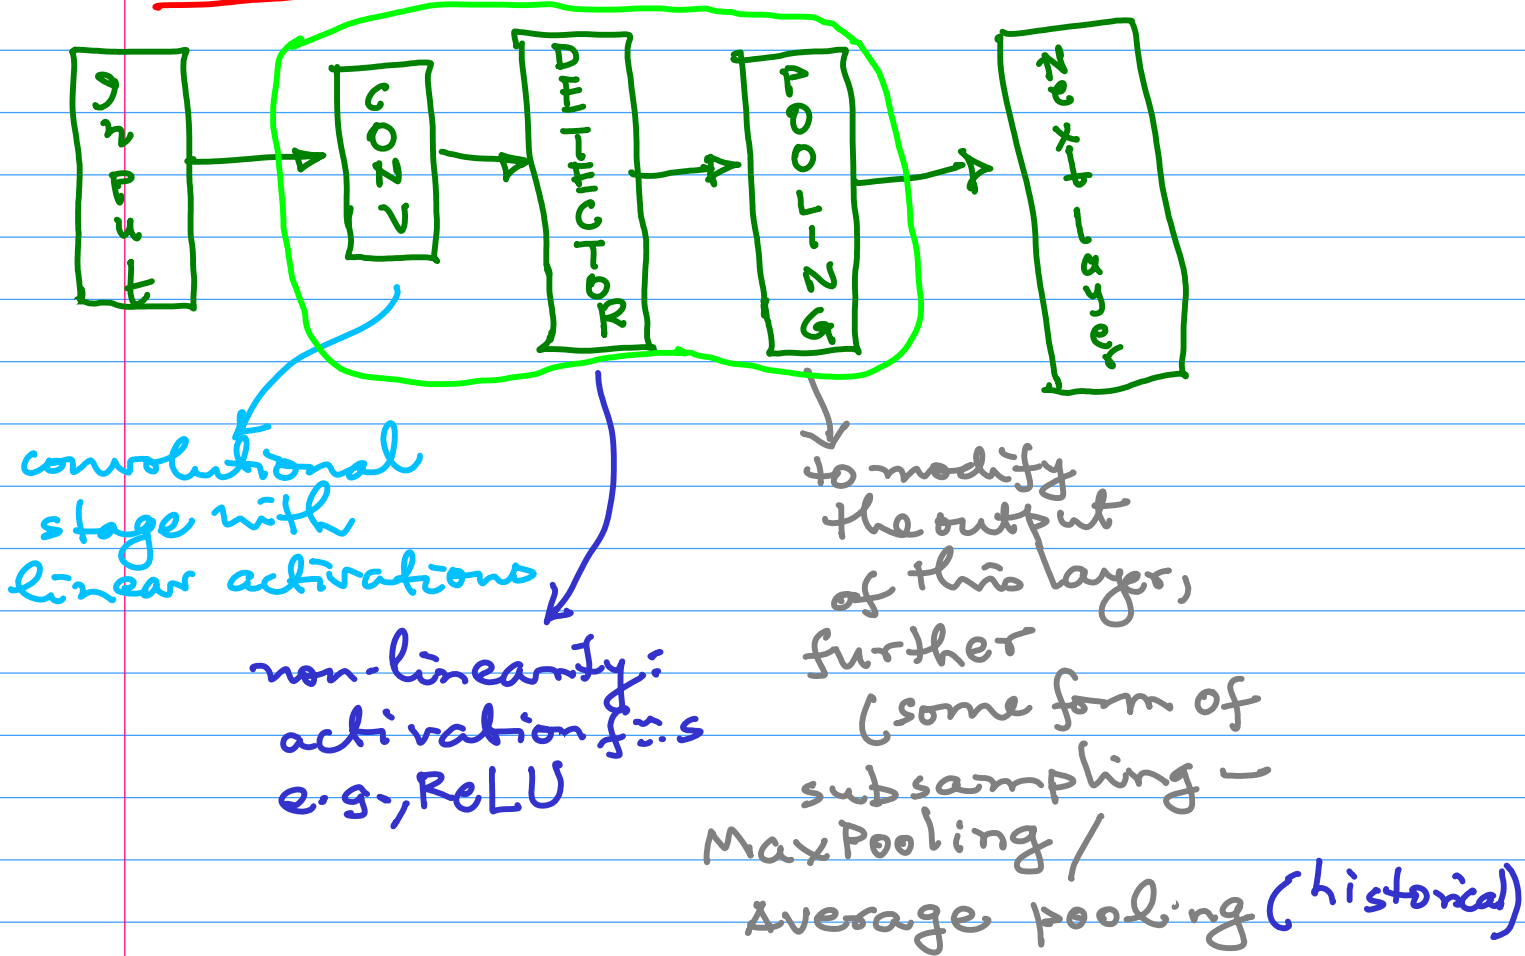 Input
CONV
DETECTOR
POOLING
Next layer
convolutional
stage with
linear activations
non-linearity:
activation f::s
e.g., ReLU
to modify
the output
of this layer,
further
(some form of
subsampling -
MaxPooling /
Average pooling (historical)